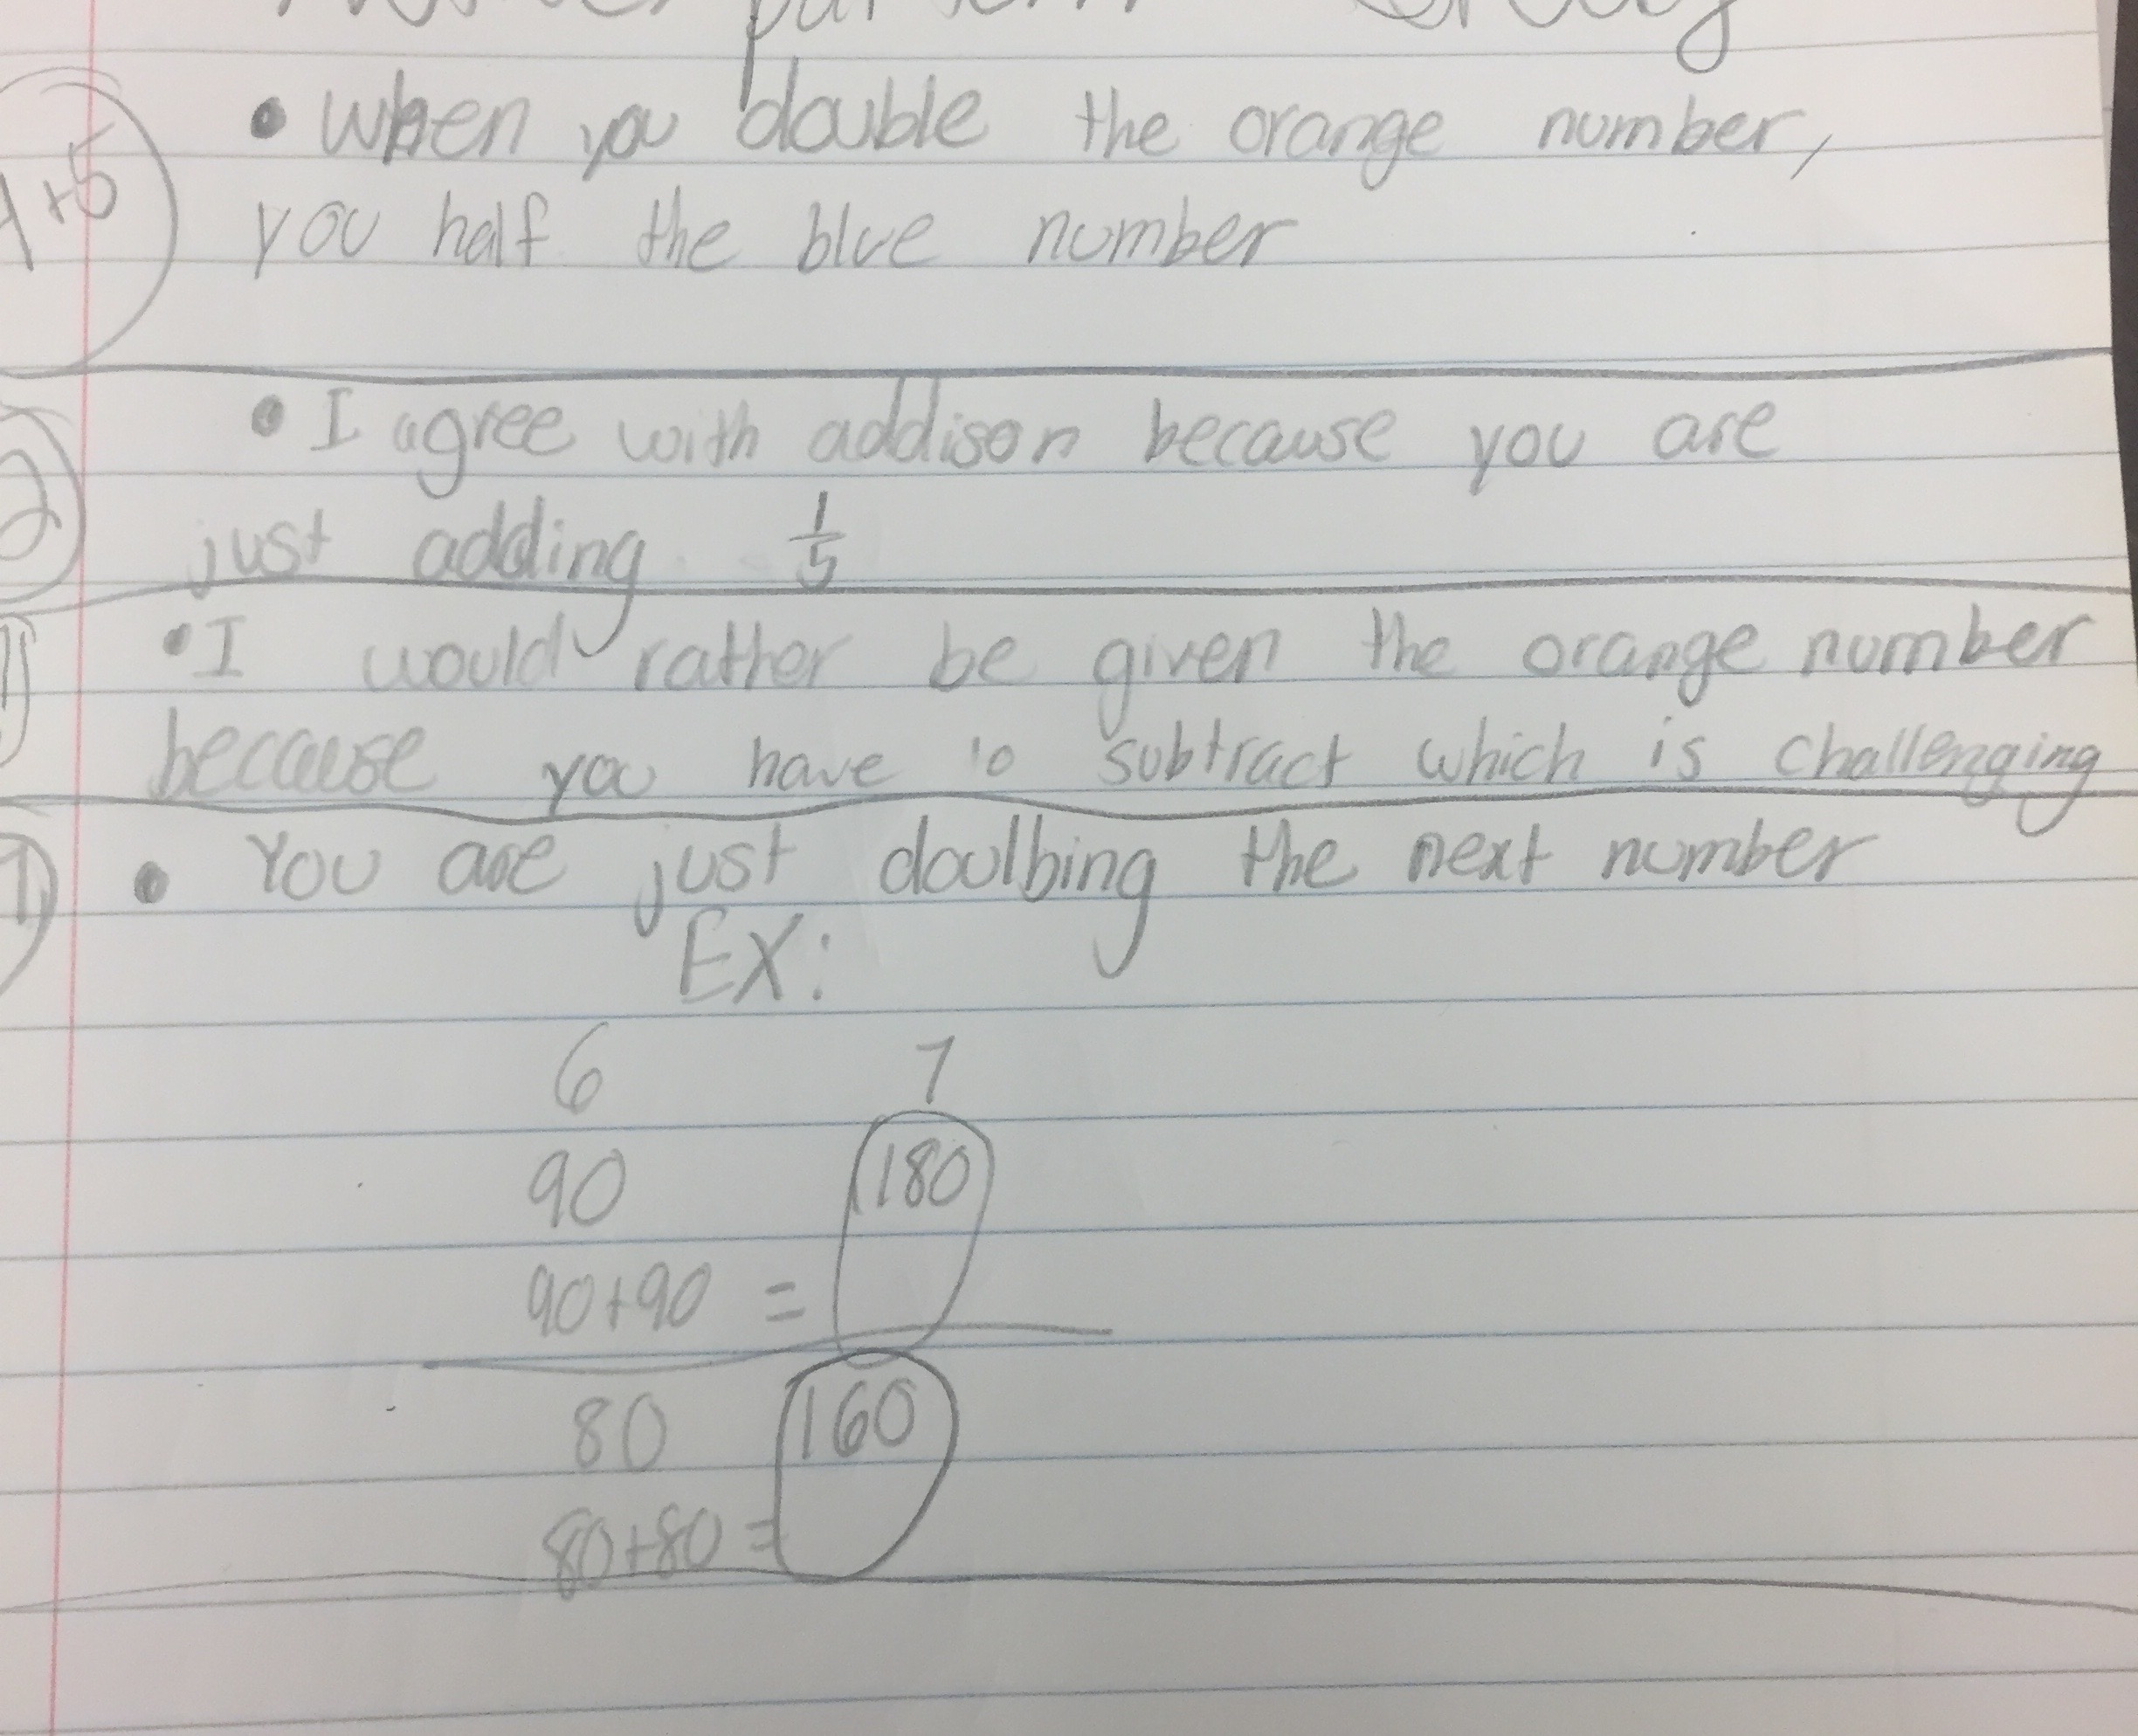 • When you double the orange number,
1+5
you half the blue number
• I agree with addison because you are
2
just adding 1/5
• I would rather be given the orange number
because you have to subtract which is challenging
• You are just doulbing the next number
EX:
6 7
90 180
90+90 =
80 160
80+80 =